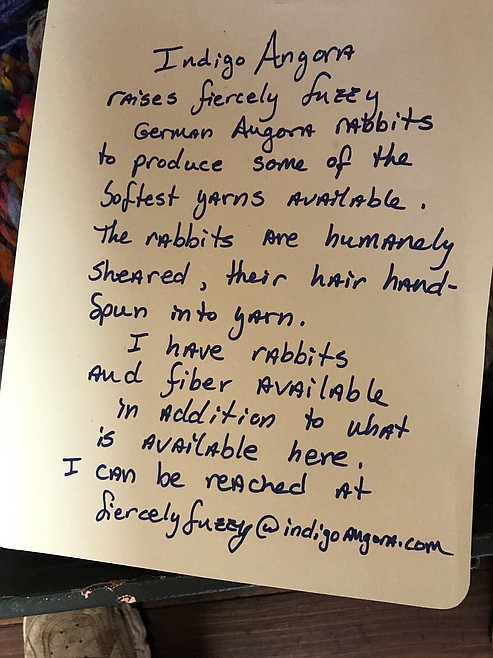 Indigo Angora
raises fiercely fuzzy
German Angora rabbits
to produce some of the
softest yarns available.
The rabbits are humanely
sheared, their hair hand-
spun into yarn.
I have rabbits
and fiber available
in addition to what
is available here.
I can be reached at
fiercelyfuzzy@indigoangora.com